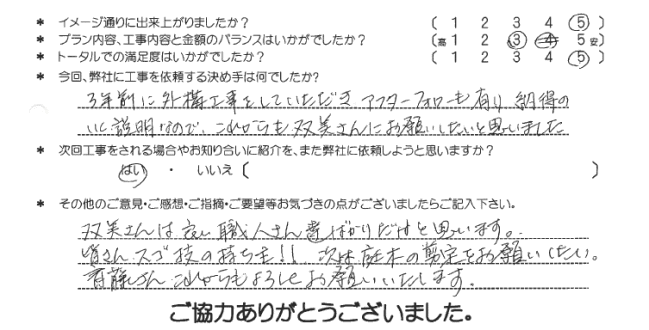 * イメージ通りに出来上がりましたか? ( 1 2 3 4 5 )
* プラン内容、工事内容と金額のバランスはいかがでしたか? (高 1 2 3 4 5 安)
* トータルでの満足度はいかがでしたか? ( 1 2 3 4 5 )
* 今回、弊社に工事を依頼する決め手は何でしたか?
3年前に外構工事をしていただき アフターフォローも有り、納得の
いく説明なので、これからも双美さんにお願いしたいと思いました
* 次回工事をされる場合やお知り合いに紹介を、また弊社に依頼しようと思いますか?
はい ・ いいえ ( )
* その他のご意見・ご感想・ご指摘・ご要望等お気づきの点がございましたらご記入下さい。
双美さんは良い職人さんばかりだけと思います。
皆さんスゴ技の持ち主!! 次は庭木の剪定をお願いしたい。
さん これからもよろしくお願いいたします。
ご協力ありがとうございました。